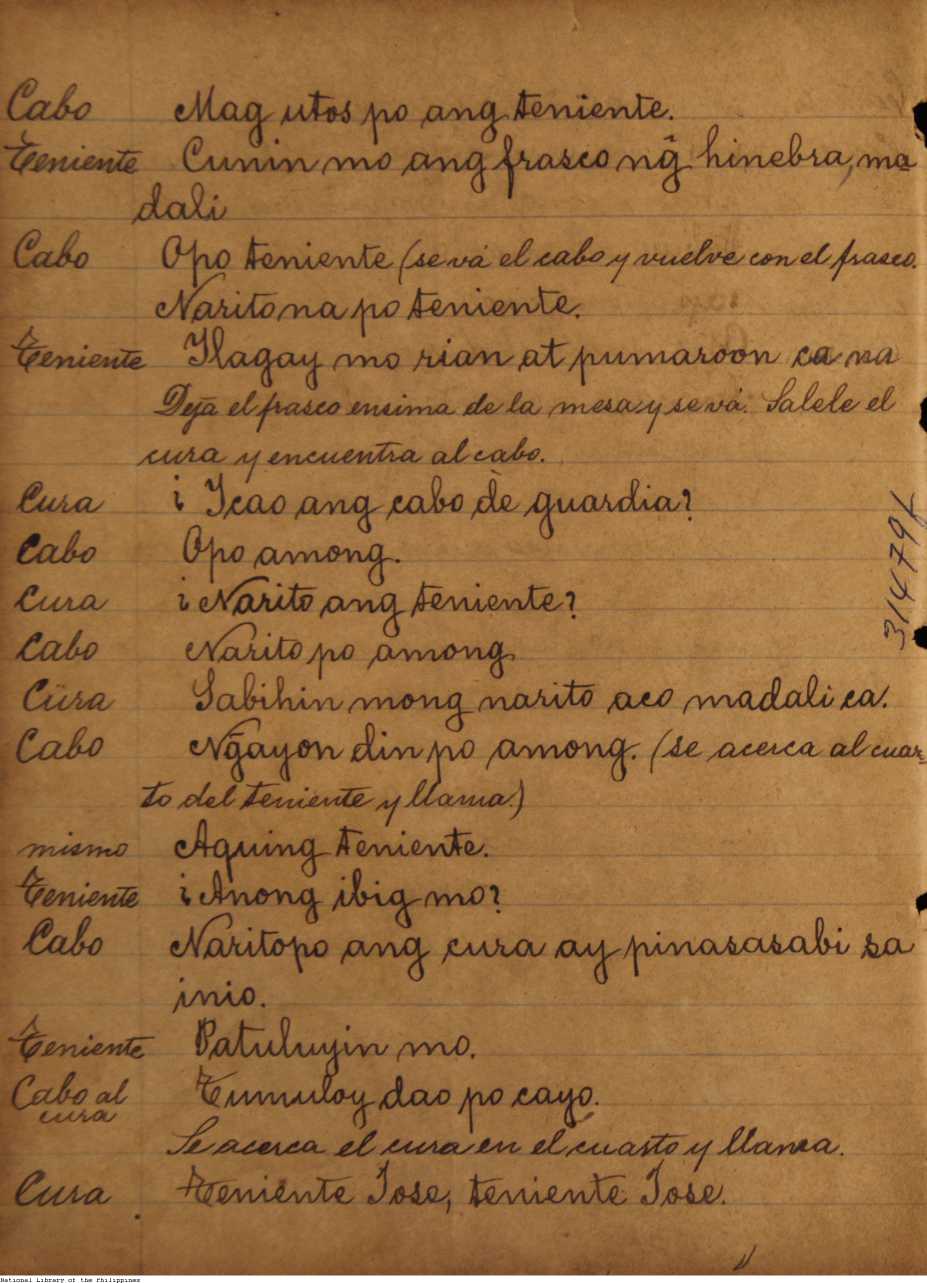 Cabo Mag utos po ang teniente.
Teniente Cunin mo ang frasco ng̃ hinebra, ma-
dali
Cabo Opo teniente (se vá el cabo y vuelve con el frasco.
Narito na po teniente.
Teniente Ilagay mo rian at pumaroon ca na
Deja el frasco ensima de la mesa y se vá. Salele el
cura y encuentra al cabo.
Cura ¿Icao ang cabo de guardia?
Cabo Opo among.
Cura ¿Narito ang teniente?
Cabo Narito po among.
Cura Sabihin mong narito aco madali ca.
Cabo Ng̃ayon din po among. (se acerca al cuar-
to del teniente y llama.)
mismo Aquing teniente.
Teniente ¿Anong ibig mo?
Cabo Narito po ang cura ay pinasasabi sa
inio.
Teniente Patuluyin mo.
Cabo al cura Tumuloy dao po cayó.
Se acerca el cura en el cuarto y llama.
Cura Teniente Jose, teniente Jose.
314796
National Library of the Philippines